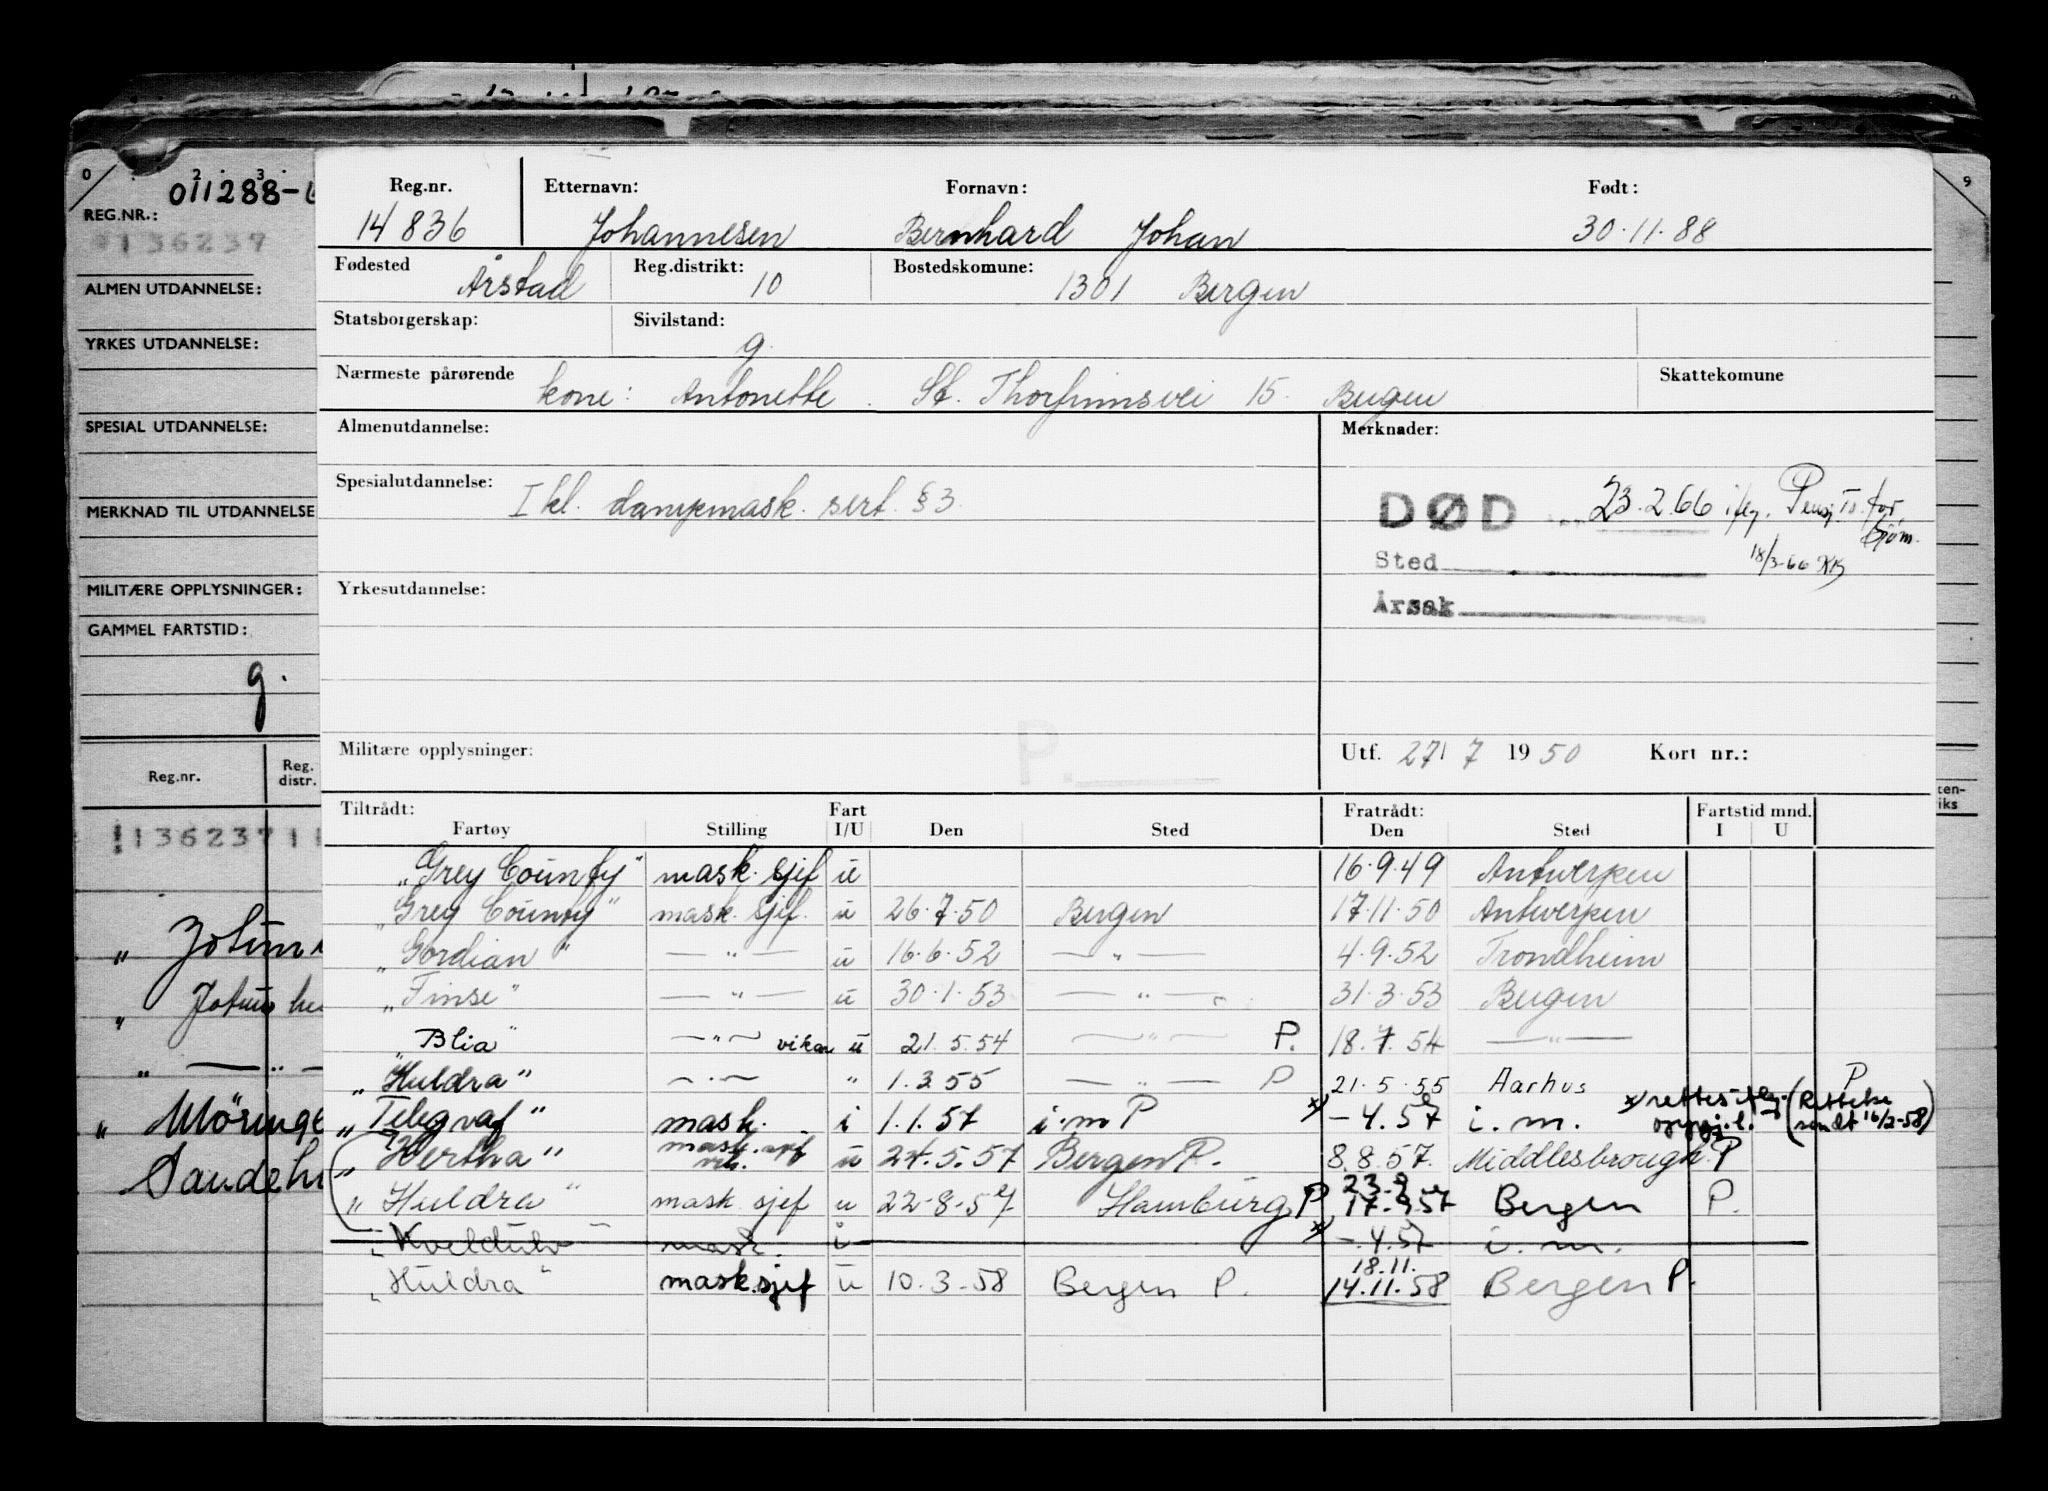 0 2 3 9
011288-
REG.NR.:
136237
ALMEN UTDANNELSE:
YRKES UTDANNELSE:
SPESIAL UTDANNELSE:
MERKNAD TIL UTDANNELSE
MILITÆRE OPPLYSNINGER:
GAMMEL FARTSTID:
g.
Reg.nr. Reg. distr.
113623711
„ Jotun
„ Jotun he
„ — „ —
„ Möringe
Sandeh
Reg.nr. Etternavn: Fornavn: Født:
14836 Johannesen Bernhard Johan 30.11.88
Fødested Årstad Reg.distrikt: 10 Bostedskomune: 1301 Bergen
Statsborgerskap: Sivilstand: g.
Nærmeste pårørende kone: Antonette. St. Thorfinnsvei 15. Bergen Skattekomune
Almenutdannelse: Merknader:
Spesialutdannelse: I kl. dampmask. sert. §3
DØD 23.2.66 ifлg. Pensj.Tr. for Sjøm.
18/3-66
Sted
Årsak
Yrkesutdannelse:
Militære opplysninger: P. Utf. 27/7 1950 Kort nr.:
Tiltrådt: Fart Fratrådt: Fartstid mnd.
Fartøy Stilling I/U Den Sted Den Sted I U
„Grey County" mask. sjef u 16.9.49 Antwerpen
„Grey County" mask. sjef. u 26.7.50 Bergen 17.11.50 Antwerpen
„Gordian" — „ — u 16.6.52 — „ — 4.9.52 Trondheim
„Finse" — „ — u 30.1.53 — „ — 31.3.53 Bergen
„Blia" — „ — vikar u 21.5.54 — „ — P. 18.7.54 — „ —
„Huldra" — „ — " 1.3.55 — „ — P 21.5.55 Aarhus P
„Telegraf" mask. i 1.1.57 i.m P x) -4.57 i.m. x) rettes iflg. oppgj.l. (Rettelse sendt 16/2-58)
„Hertha" mask. sjef vik. u 24.5.57 Bergen P. 8.8.57. Middlesbrough. P
„Huldra" mask sjef u 22-8-57 Hamburg P 23.9 17.9.57 Bergen P.
„Kveldulv" mask. i x) -.4.57 i.m.
„Huldra" mask.sjef u 10.3-58 Bergen P. 18.11. 14.11.58 Bergen P.